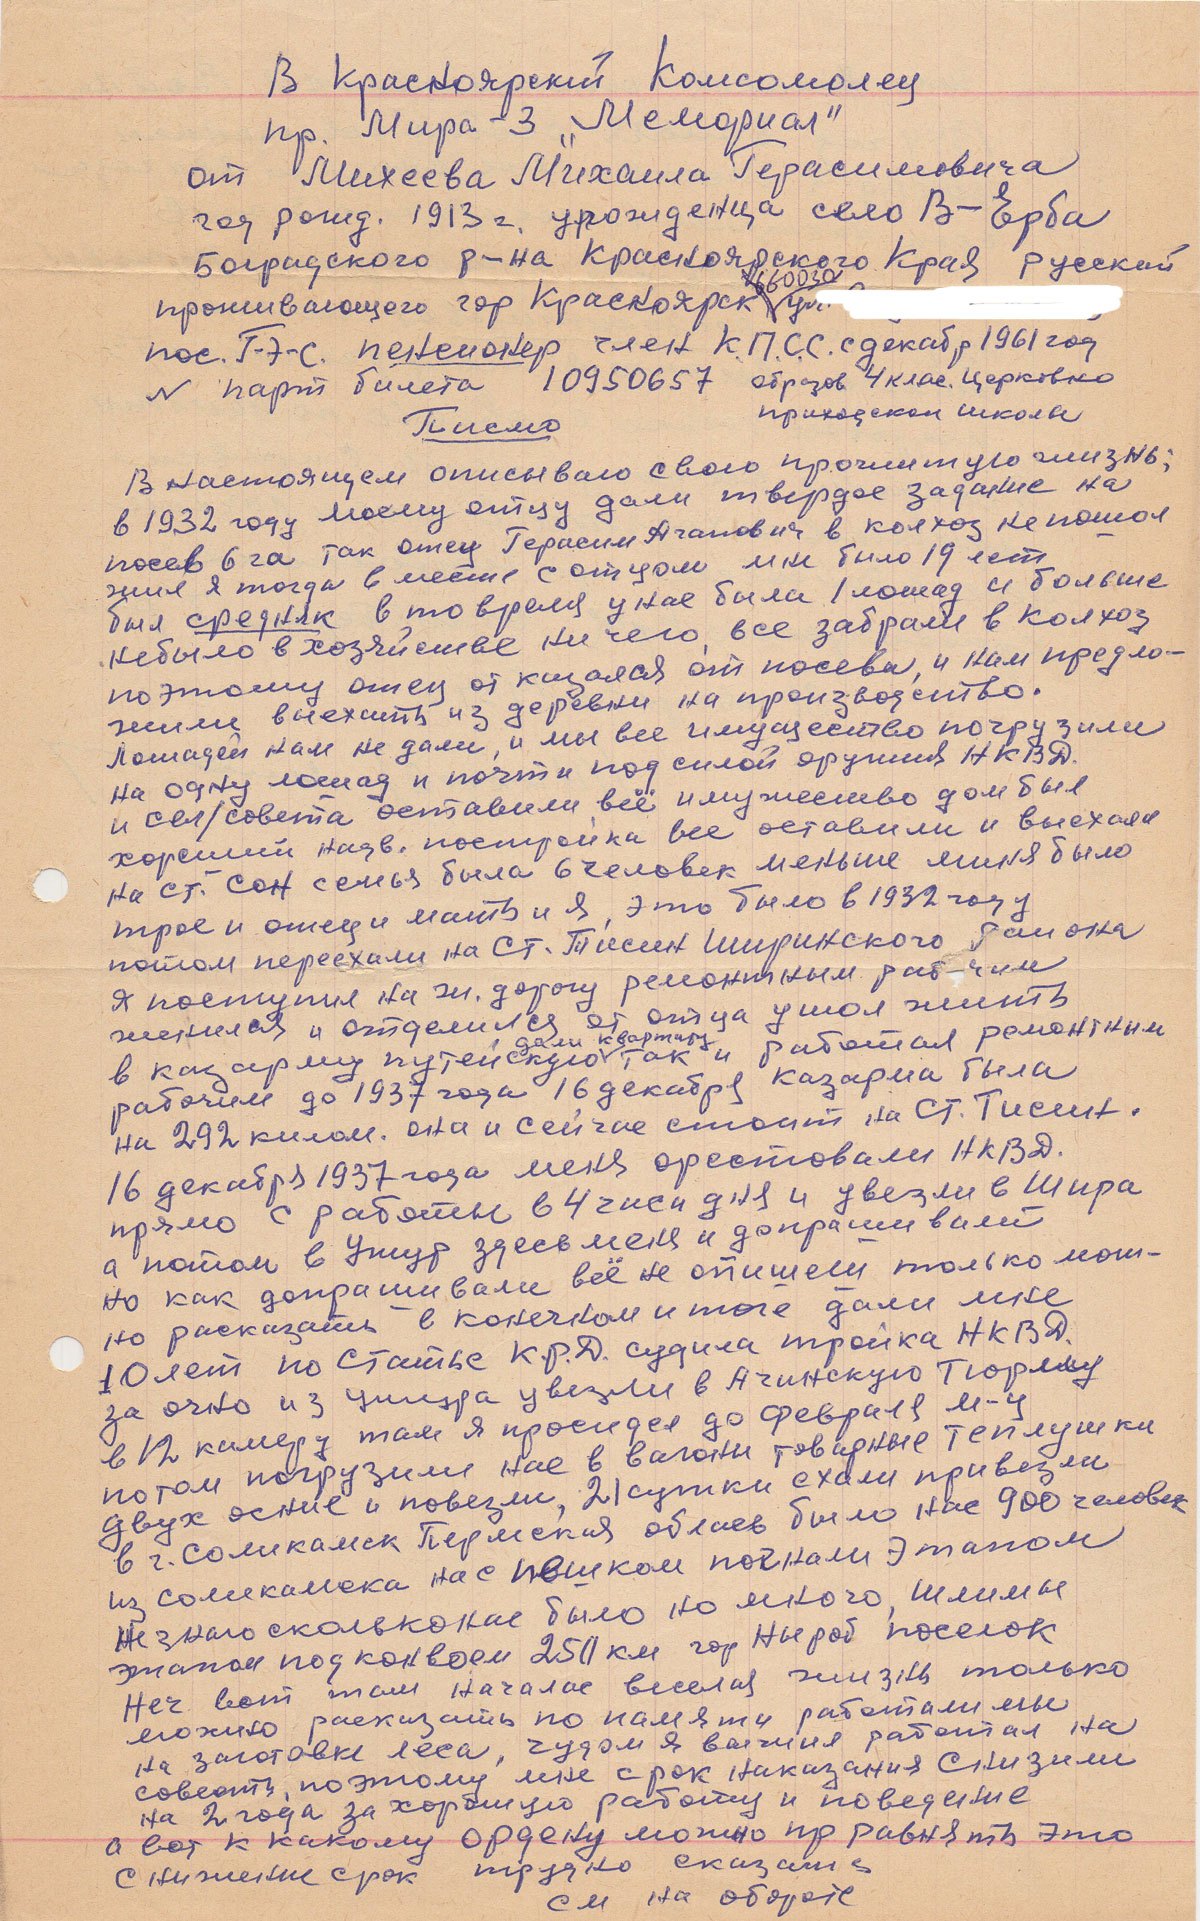 В Красноярский Комсомолец
пр. Мира-3 „Мемориал"
от Михеева Михаила Герасимовича
год рожд. 1913 г. урожденца село В-Ерба
Боградского р-на Красноярского Края русский
660030
проживающего гор Красноярск ул.
пос. Г-Э-С. пенсионер член К.П.С.С. с декабр 1961 год
N парт билета 10950657 образов 4 клас. Церковно
приходской школы
Писмо
В настоящем описываю свою прочитую жизнь;
в 1932 году моему отцу дали твердое задание на
посев 6 га так отец Герасим Агапович в колхоз непошол
жил я тогда вместе с отцом мне было 19 лет
был средняк в то время у нас была 1 лошад и больше
небыло в хозяйстве ни чего, все забрали в колхоз
поэтому отец от казался от посева, и нам предло-
жили выехать из деревни на производство.
Лошадей нам не дали, и мы все имущество погрузили
на одну лошад и почти под силой оружия НКВД.
и сел/совета оставили всё имужество дом был
хороший надв. постройка все оставили и выехали
на ст. Сон семья была 6 человек меньше миня было
трое и отец и мать и я, это было в 1932 году
потом переехали на ст. Тисин Ширинского района
я поступил на ж. дорогу ремонтным раб чим
женился и отделился от отца ушол жить
дали квартиру
в казарму путейскую так и работал ремонтным
рабочим до 1937 года 16 декабря казарма была
на 292 килом. она и сейчас стоит на Ст. Тисин.
16 декабря 1937 года меня орестовали НКВД.
прямо с работы в 4 часа дня и увезли в Шира
а потом в Ужур здесь меня и допрашивали
но как допрашивали всё не опишеш только мож-
но расказать в конечном итоге дали мне
10 лет по Статье К.Р.Д. судила тройка НКВД.
за очно из Ужура увезли в Ачинскую Тюрму
в 12 камеру там я просидел до февраля м-ц
потом погрузили нас в вагоны товарные теплушки
двух осные и повезли, 21 сутки ехали привезли
в г. Соликамск Пермская облась было нас 900 человек
из Соликамска нас пешком погнали Этапом
Незнаю сколько нас было но много, шли мы
этапом под конвоем 250 км гор Ныроб поселок
Нет вот там началас веселая жизнь только
можно расказать по памяти работали мы
на заготовке леса, чудом я выжил работал на
совесть, поэтому мне срок наказания снизили
на 2 года за хорошую работу и поведение
а вот к какому ордену можно пр равнять это
снижение срок трудно сказать
см на обороте